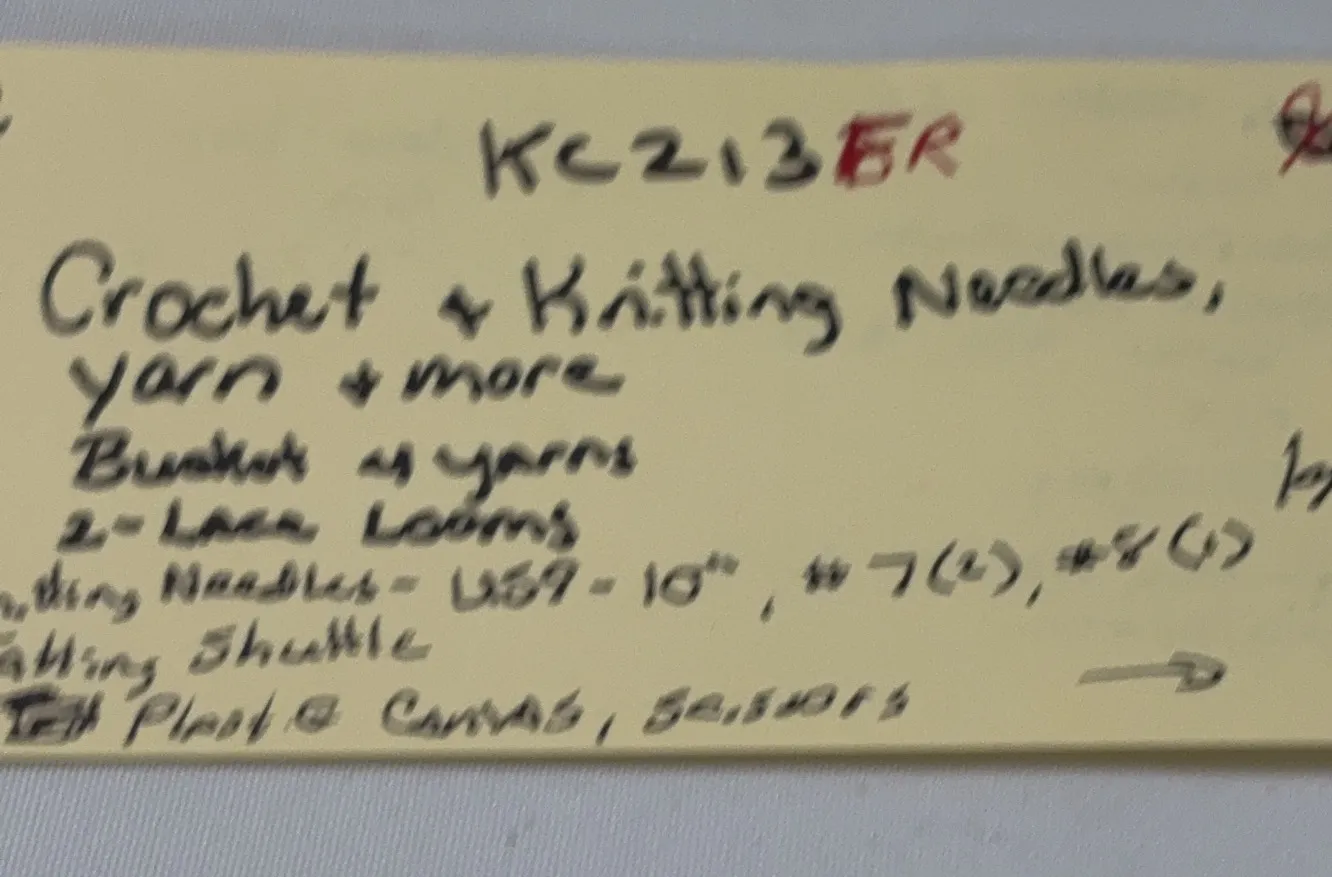 KC213ER
Crochet + Knitting Needles,
yarn + more
Bucket of yarns
2 - Lace Looms
Needles - US9 - 10", #7(2), #8(1)
Shuttle
Plast Canvas, Scissors